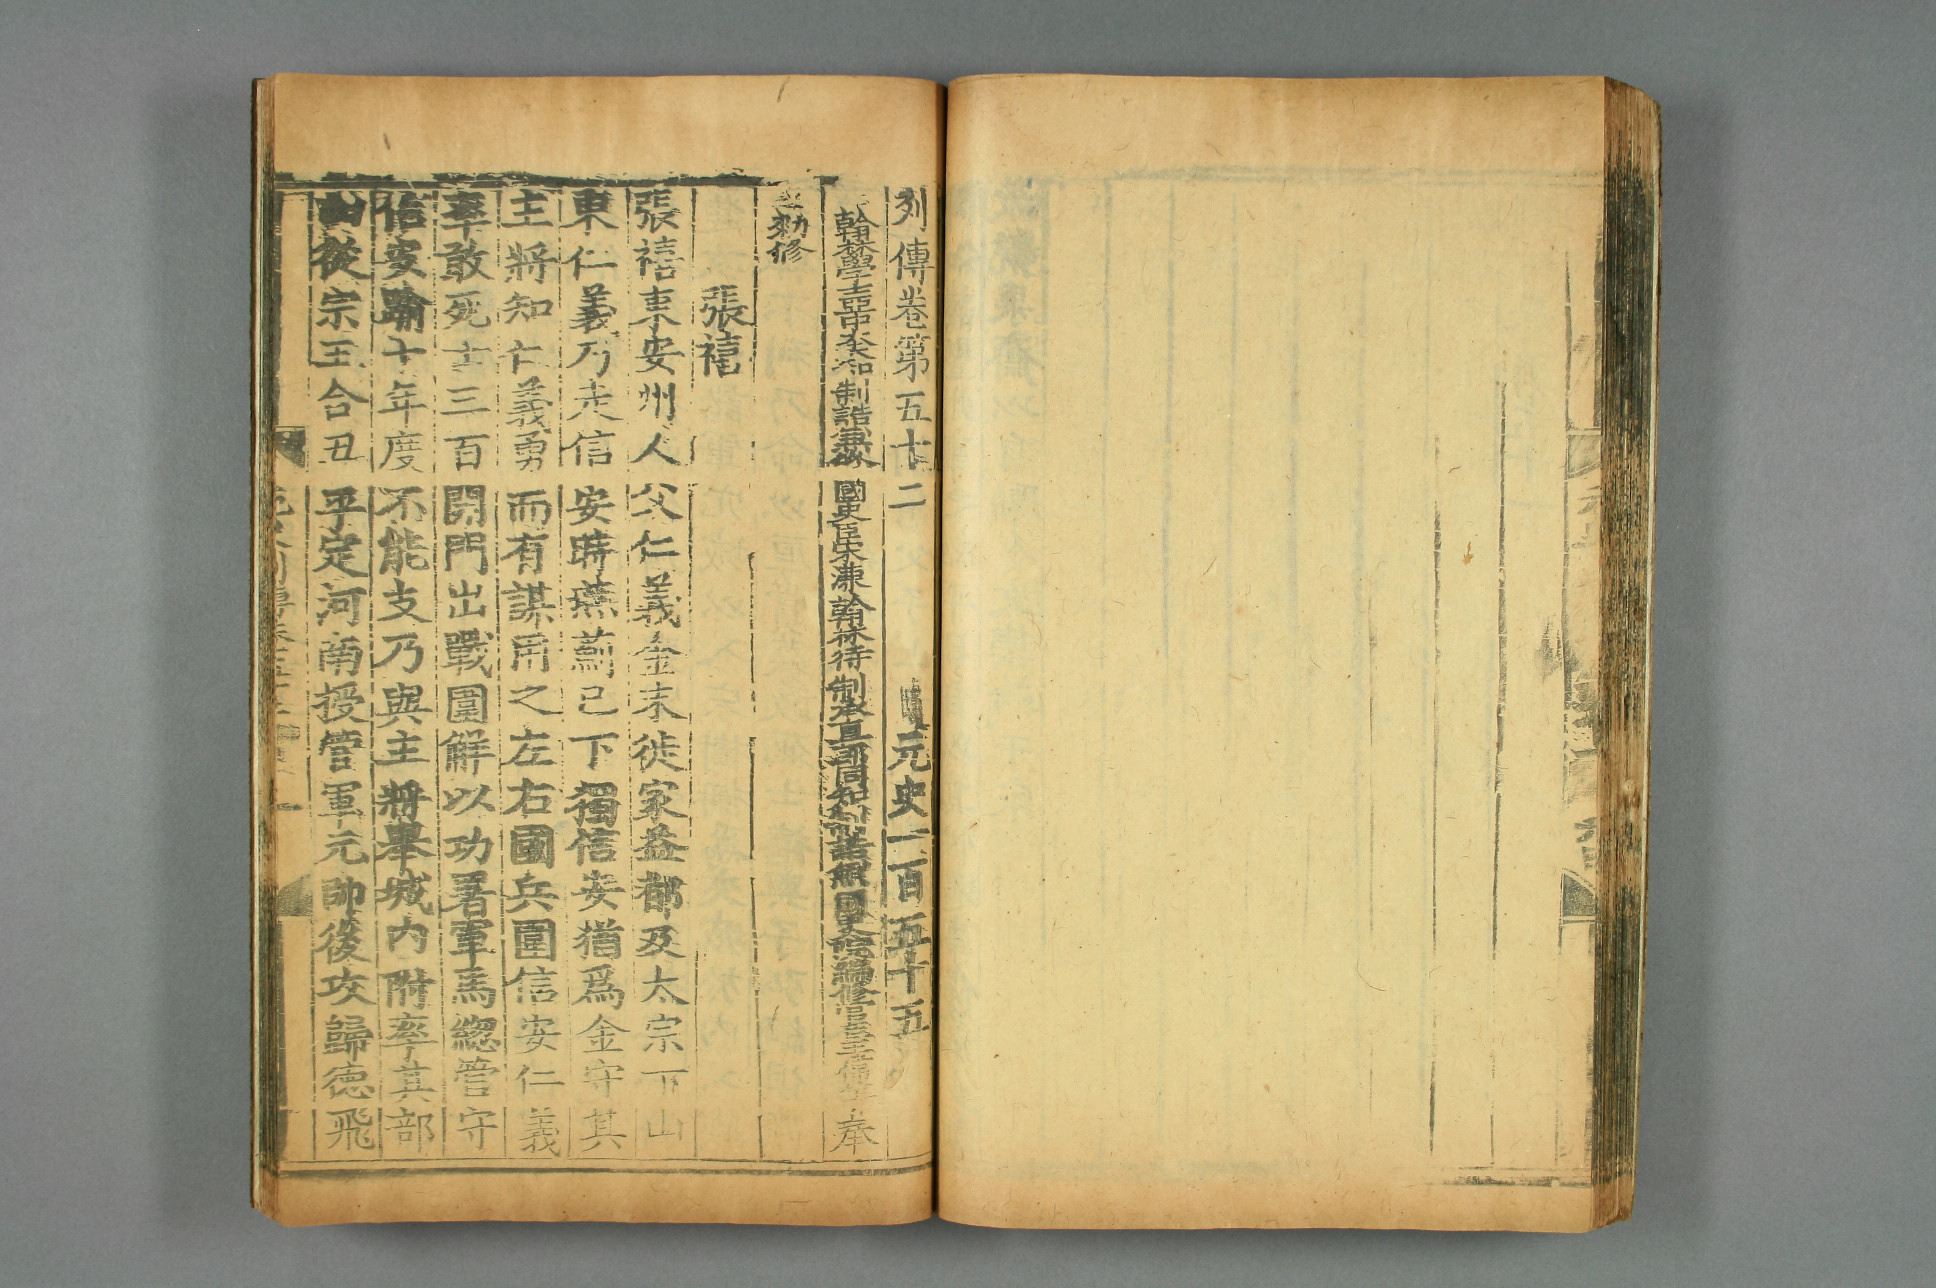 列傳卷第五十二 元史一百五十五
翰林學士亞中大夫知制誥兼修 國史臣宋濂翰林待制承直郎同知制誥兼國史院編修官臣王禕等奉
勑修
張禧
張禧東安州人父仁義金末徙家益都及太宗下山
東仁義乃走信安時燕薊已下獨信安猶爲金守其
主將知仁義勇而有謀用之左右國兵圍信安仁義
率敢死士三百開門出戰圍解以功署軍馬總管守
信安踰十年度不能支乃與主將舉城內附率其部
曲從宗王合丑平定河南授管軍元帥後攻歸德飛